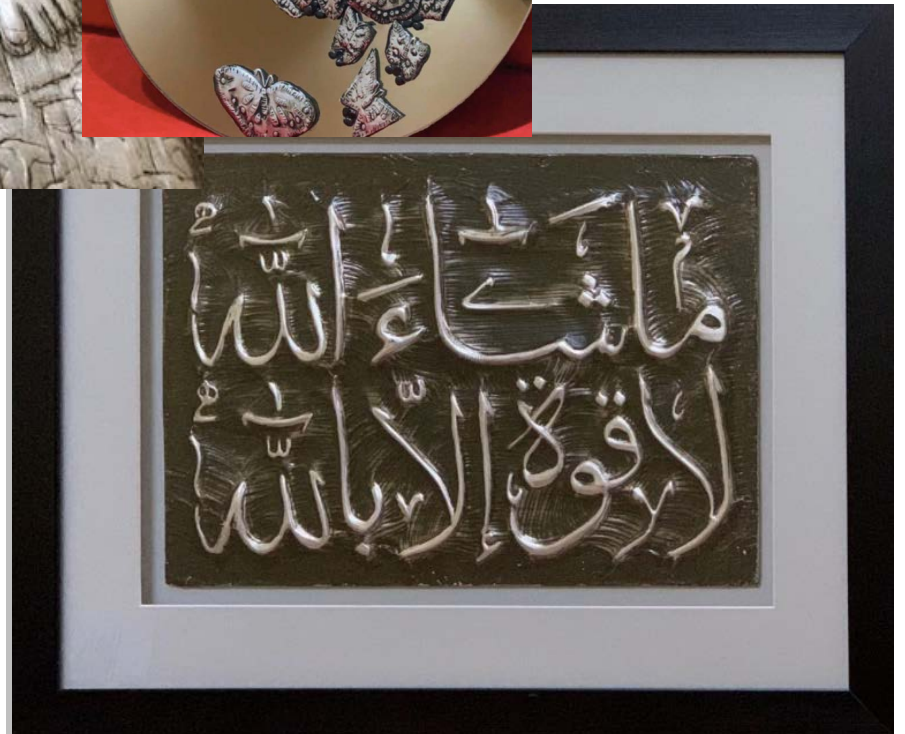 ما شاءَ الله
لا قوة إلّا بالله